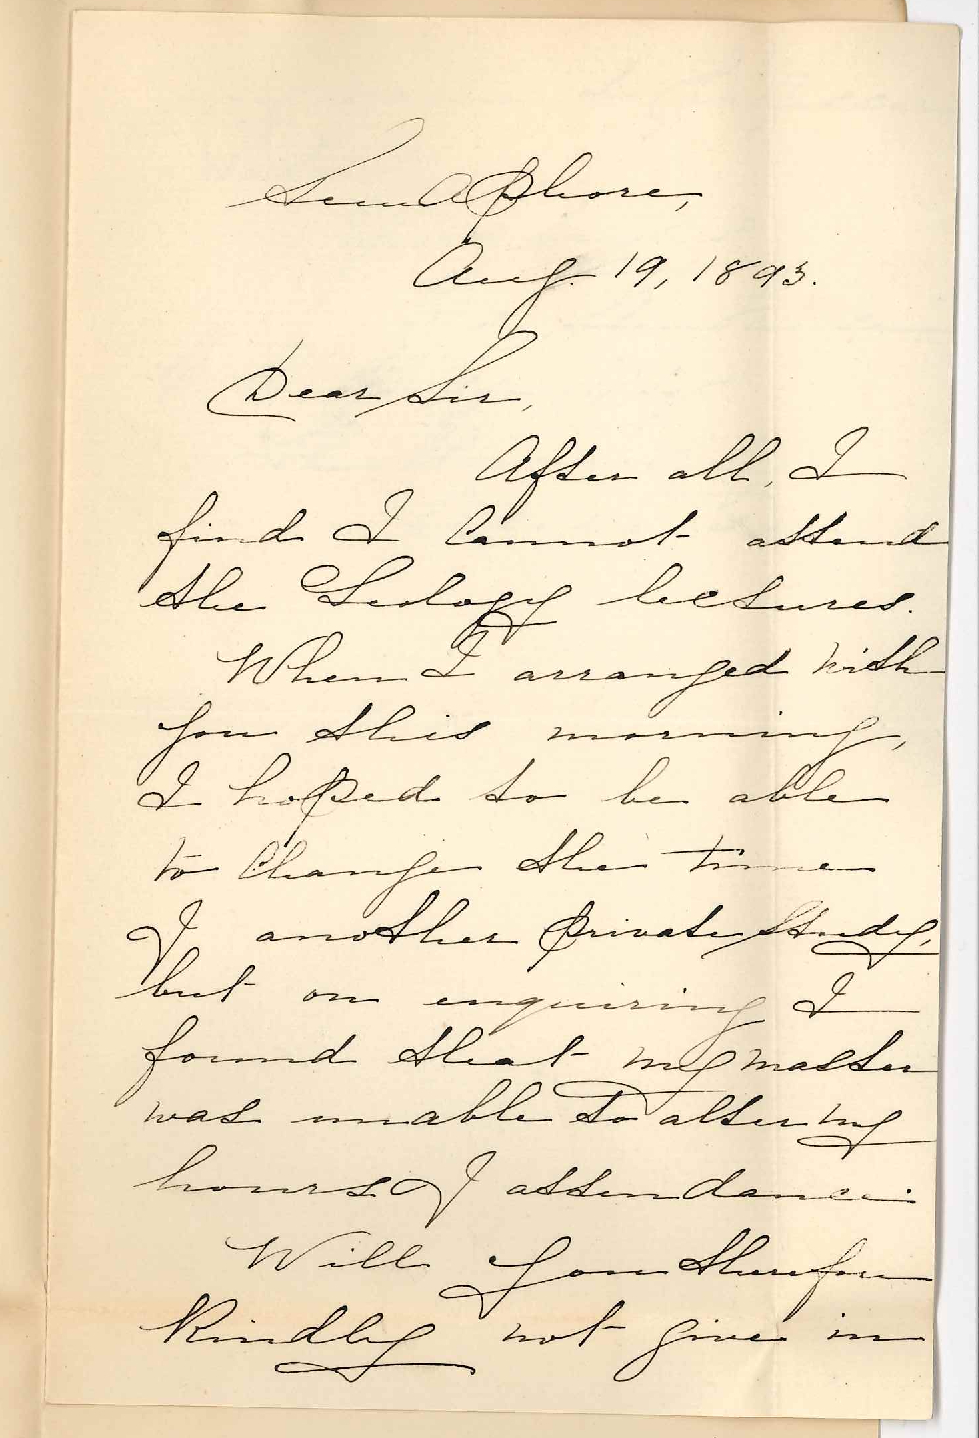 Semaphore,
Aug. 19, 1893.
Dear Sir,
After all, I
find I cannot attend
the Geology lectures.
When I arranged with
you this morning,
I hoped to be able
to change the time
of another private study,
but on enquiring I
found that my master
was unable to alter my
hours of attendance.
Will you therefore
kindly not give in